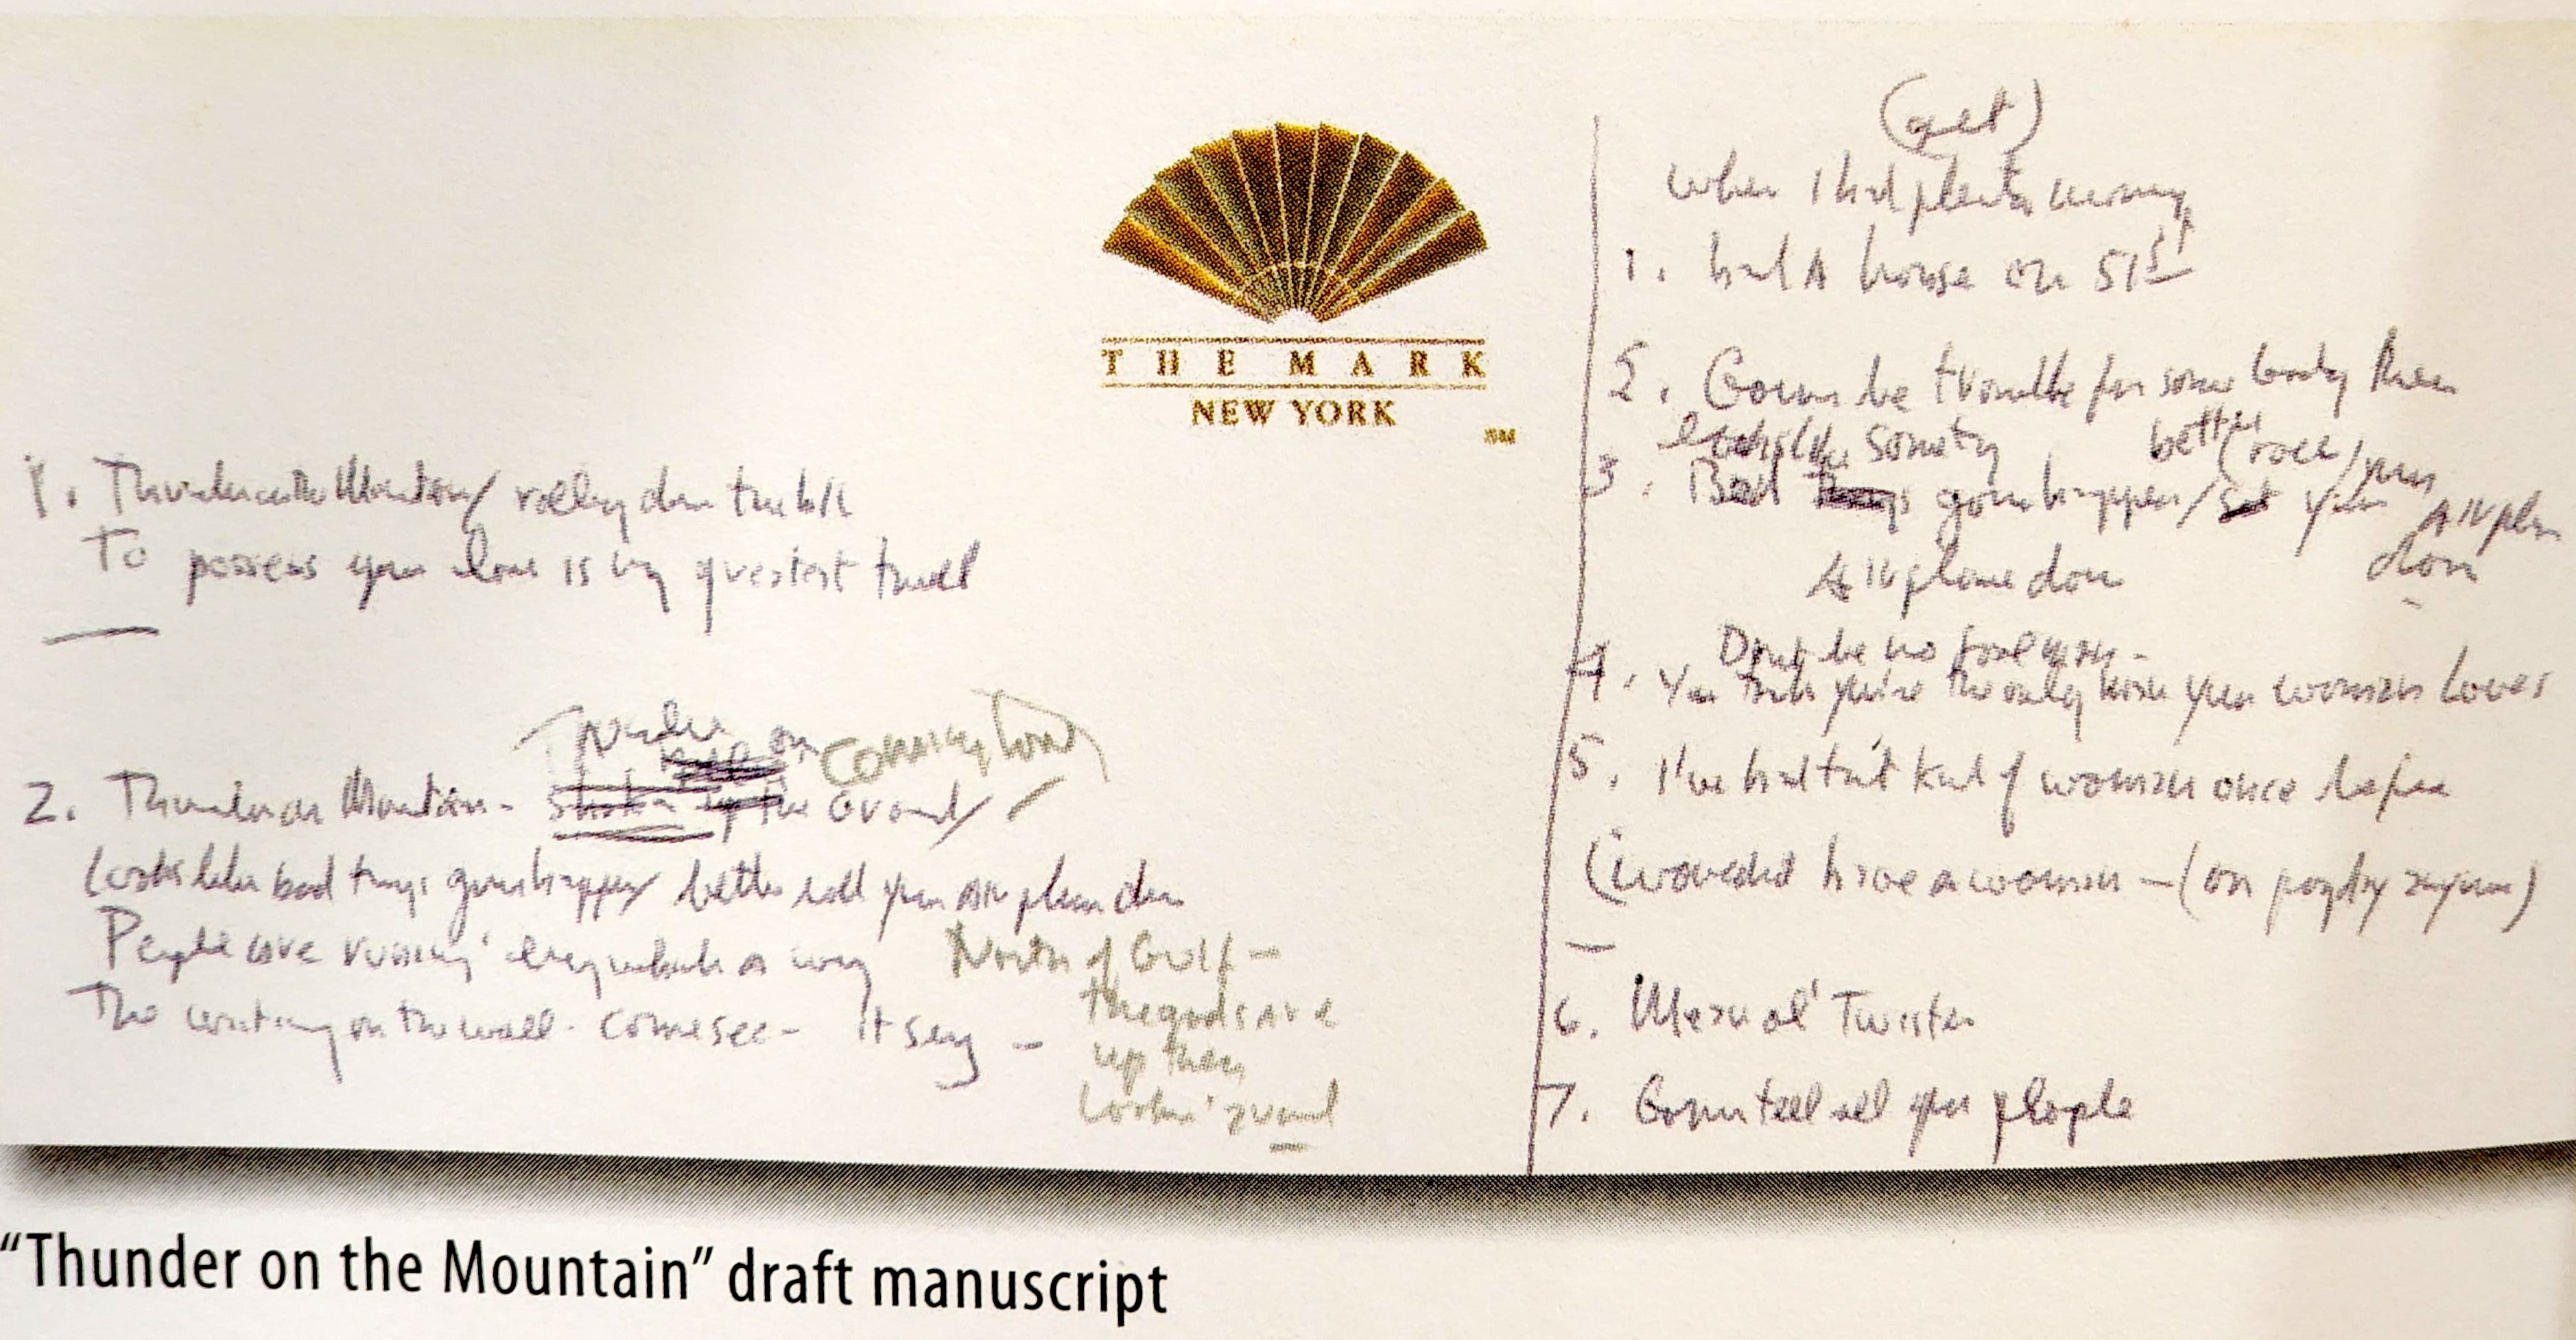 THE MARK
NEW YORK
SM
1. Thunder on the Mountain / rolling down the hill
To possess your love is my greatest thrill
Thunder on coming down
2. Thunder on Mountain - the Ground /
Looks like bad things gonna happen / better roll your airplane down
People are running' everywhich a way
The writing on the wall - come see - it say -
North of Gulf -
the gods are
up there
Lookin' around
(get)
when I had plenty money
1. had A house on 51st
2. Gonna be trouble for somebody
society better (roll) your
3. Bad gonna happen / your Airplane
down
Airplane down
Don't be no fool
4. You think you're the only your woman Loves
5. I've had that kind of woman once before
have a woman - (on
6. Mean ol' Twister
7. Gonna tell all your people
"Thunder on the Mountain" draft manuscript